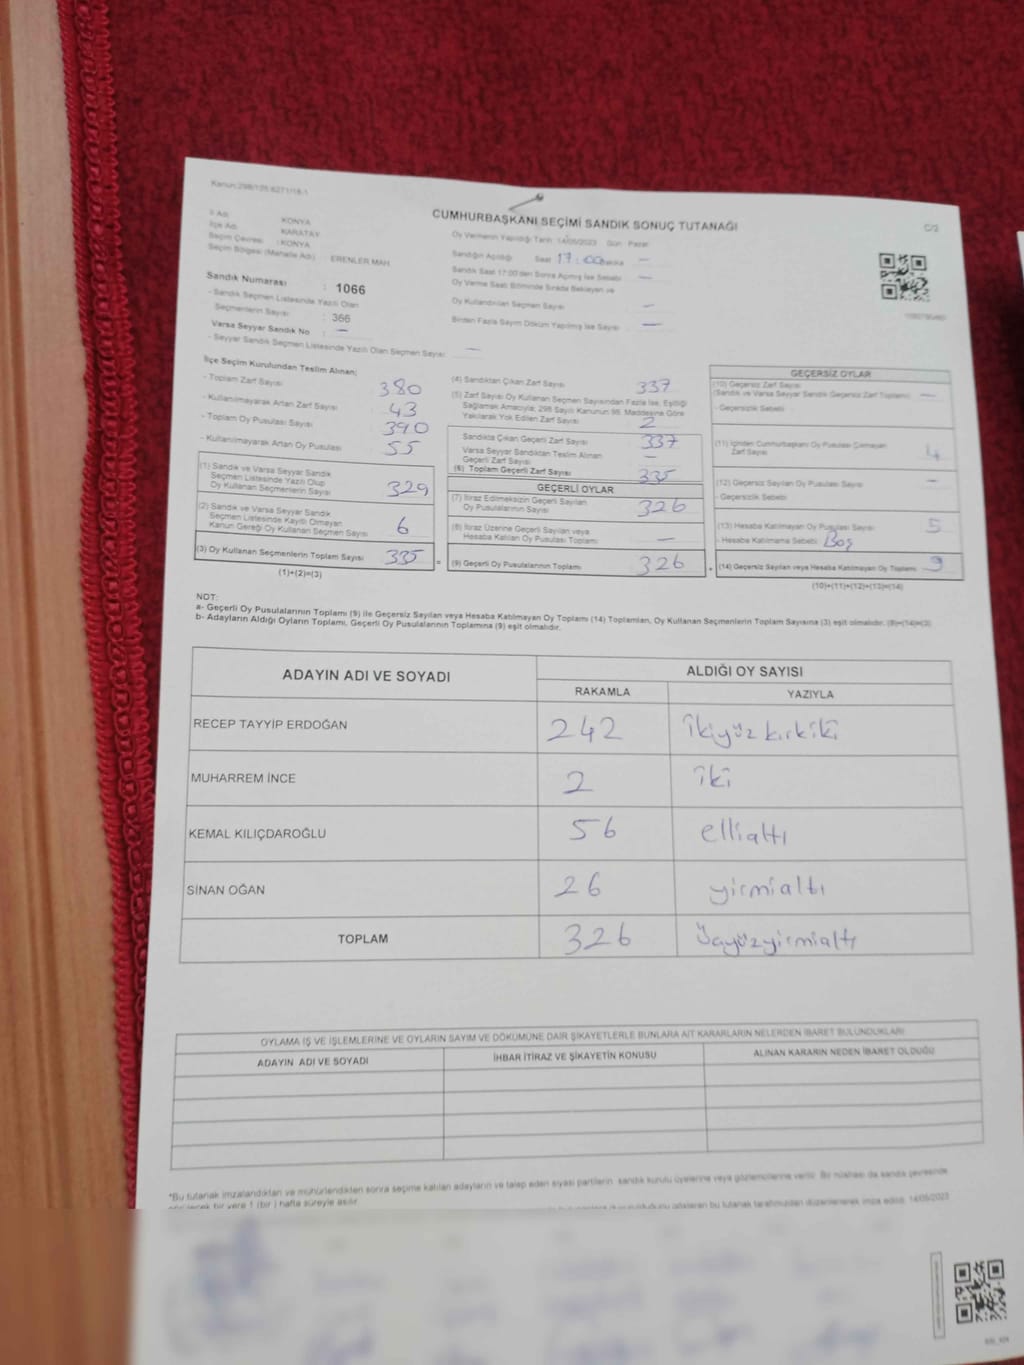 Kanun:298/105 6271/18-1
CUMHURBAŞKANI SEÇİMİ SANDIK SONUÇ TUTANAĞI
C/2
İl Adı : KONYA
İlçe Adı : KARATAY
Seçim Çevresi : KONYA
Seçim Bölgesi (Mahalle Adı) : ERENLER MAH.
Oy Vermenin Yapıldığı Tarih : 14/05/2023 Gün : Pazar
Sandığın Açıldığı Saat 17:00 Dakika —
Sandık Saat 17:00'den Sonra Açılmış İse Sebebi —
Oy Verme Saati Bitiminde Sırada Bekleyen ve
Oy Kullandırılan Seçmen Sayısı —
Birden Fazla Sayım Döküm Yapılmış İse Sayısı —
Sandık Numarası : 1066
- Sandık Seçmen Listesinde Yazılı Olan
Seçmenlerin Sayısı : 366
Varsa Seyyar Sandık No : —
- Seyyar Sandık Seçmen Listesinde Yazılı Olan Seçmen Sayısı —
İlçe Seçim Kurulundan Teslim Alınan;
- Toplam Zarf Sayısı 380
- Kullanılmayarak Artan Zarf Sayısı 43
- Toplam Oy Pusulası Sayısı 390
- Kullanılmayarak Artan Oy Pusulası 55
(1) Sandık ve Varsa Seyyar Sandık
Seçmen Listesinde Yazılı Olup
Oy Kullanan Seçmenlerin Sayısı 329
(2) Sandık ve Varsa Seyyar Sandık
Seçmen Listesinde Kayıtlı Olmayan
Kanun Gereği Oy Kullanan Seçmen Sayısı 6
(3) Oy Kullanan Seçmenlerin Toplam Sayısı 335
(1)+(2)=(3)
(4) Sandıktan Çıkan Zarf Sayısı 337
(5) Zarf Sayısı Oy Kullanan Seçmen Sayısından Fazla İse, Eşitliği
Sağlamak Amacıyla; 298 Sayılı Kanunun 98. Maddesine Göre
Yakılarak Yok Edilen Zarf Sayısı 2
Sandıkta Çıkan Geçerli Zarf Sayısı 337
Varsa Seyyar Sandıktan Teslim Alınan
Geçerli Zarf Sayısı —
(6) Toplam Geçerli Zarf Sayısı 335
GEÇERLİ OYLAR
(7) İtiraz Edilmeksizin Geçerli Sayılan
Oy Pusulalarının Sayısı 326
(8) İtiraz Üzerine Geçerli Sayılan veya
Hesaba Katılan Oy Pusulası Toplamı —
= (9) Geçerli Oy Pusulalarının Toplamı 326
GEÇERSİZ OYLAR
(10) Geçersiz Zarf Sayısı
(Sandık ve Varsa Seyyar Sandık Geçersiz Zarf Toplamı) —
- Geçersizlik Sebebi
(11) İçinden Cumhurbaşkanı Oy Pusulası Çıkmayan
Zarf Sayısı 4
(12) Geçersiz Sayılan Oy Pusulası Sayısı —
- Geçersizlik Sebebi
(13) Hesaba Katılmayan Oy Pusulası Sayısı 5
- Hesaba Katılmama Sebebi Boş
+ (14) Geçersiz Sayılan veya Hesaba Katılmayan Oy Toplamı 9
(10)+(11)+(12)+(13)=(14)
NOT:
a- Geçerli Oy Pusulalarının Toplamı (9) ile Geçersiz Sayılan veya Hesaba Katılmayan Oy Toplamı (14) Toplamları, Oy Kullanan Seçmenlerin Toplam Sayısına (3) eşit olmalıdır. (9)+(14)=(3)
b- Adayların Aldığı Oyların Toplamı, Geçerli Oy Pusulalarının Toplamına (9) eşit olmalıdır.
ADAYIN ADI VE SOYADI ALDIĞI OY SAYISI
RAKAMLA YAZIYLA
RECEP TAYYİP ERDOĞAN 242 ikiyüzkırkiki
MUHARREM İNCE 2 iki
KEMAL KILIÇDAROĞLU 56 ellialtı
SİNAN OĞAN 26 yirmialtı
TOPLAM 326 üçyüzyirmialtı
OYLAMA İŞ VE İŞLEMLERİNE VE OYLARIN SAYIM VE DÖKÜMÜNE DAİR ŞİKAYETLERLE BUNLARA AİT KARARLARIN NELERDEN İBARET BULUNDUKLARI
ADAYIN ADI VE SOYADI İHBAR İTİRAZ VE ŞİKAYETİN KONUSU ALINAN KARARIN NEDEN İBARET OLDUĞU
*Bu tutanak imzalandıktan ve mühürlendikten sonra seçime katılan adayların ve talep eden siyasi partilerin sandık kurulu üyelerine veya gözlemcilerine verilir. Bir nüshası da sandık çevresinde
bir yere 1 (bir) hafta süreyle asılır.
bu tutanak tarafımızdan düzenlenerek imza edildi. 14/05/2023